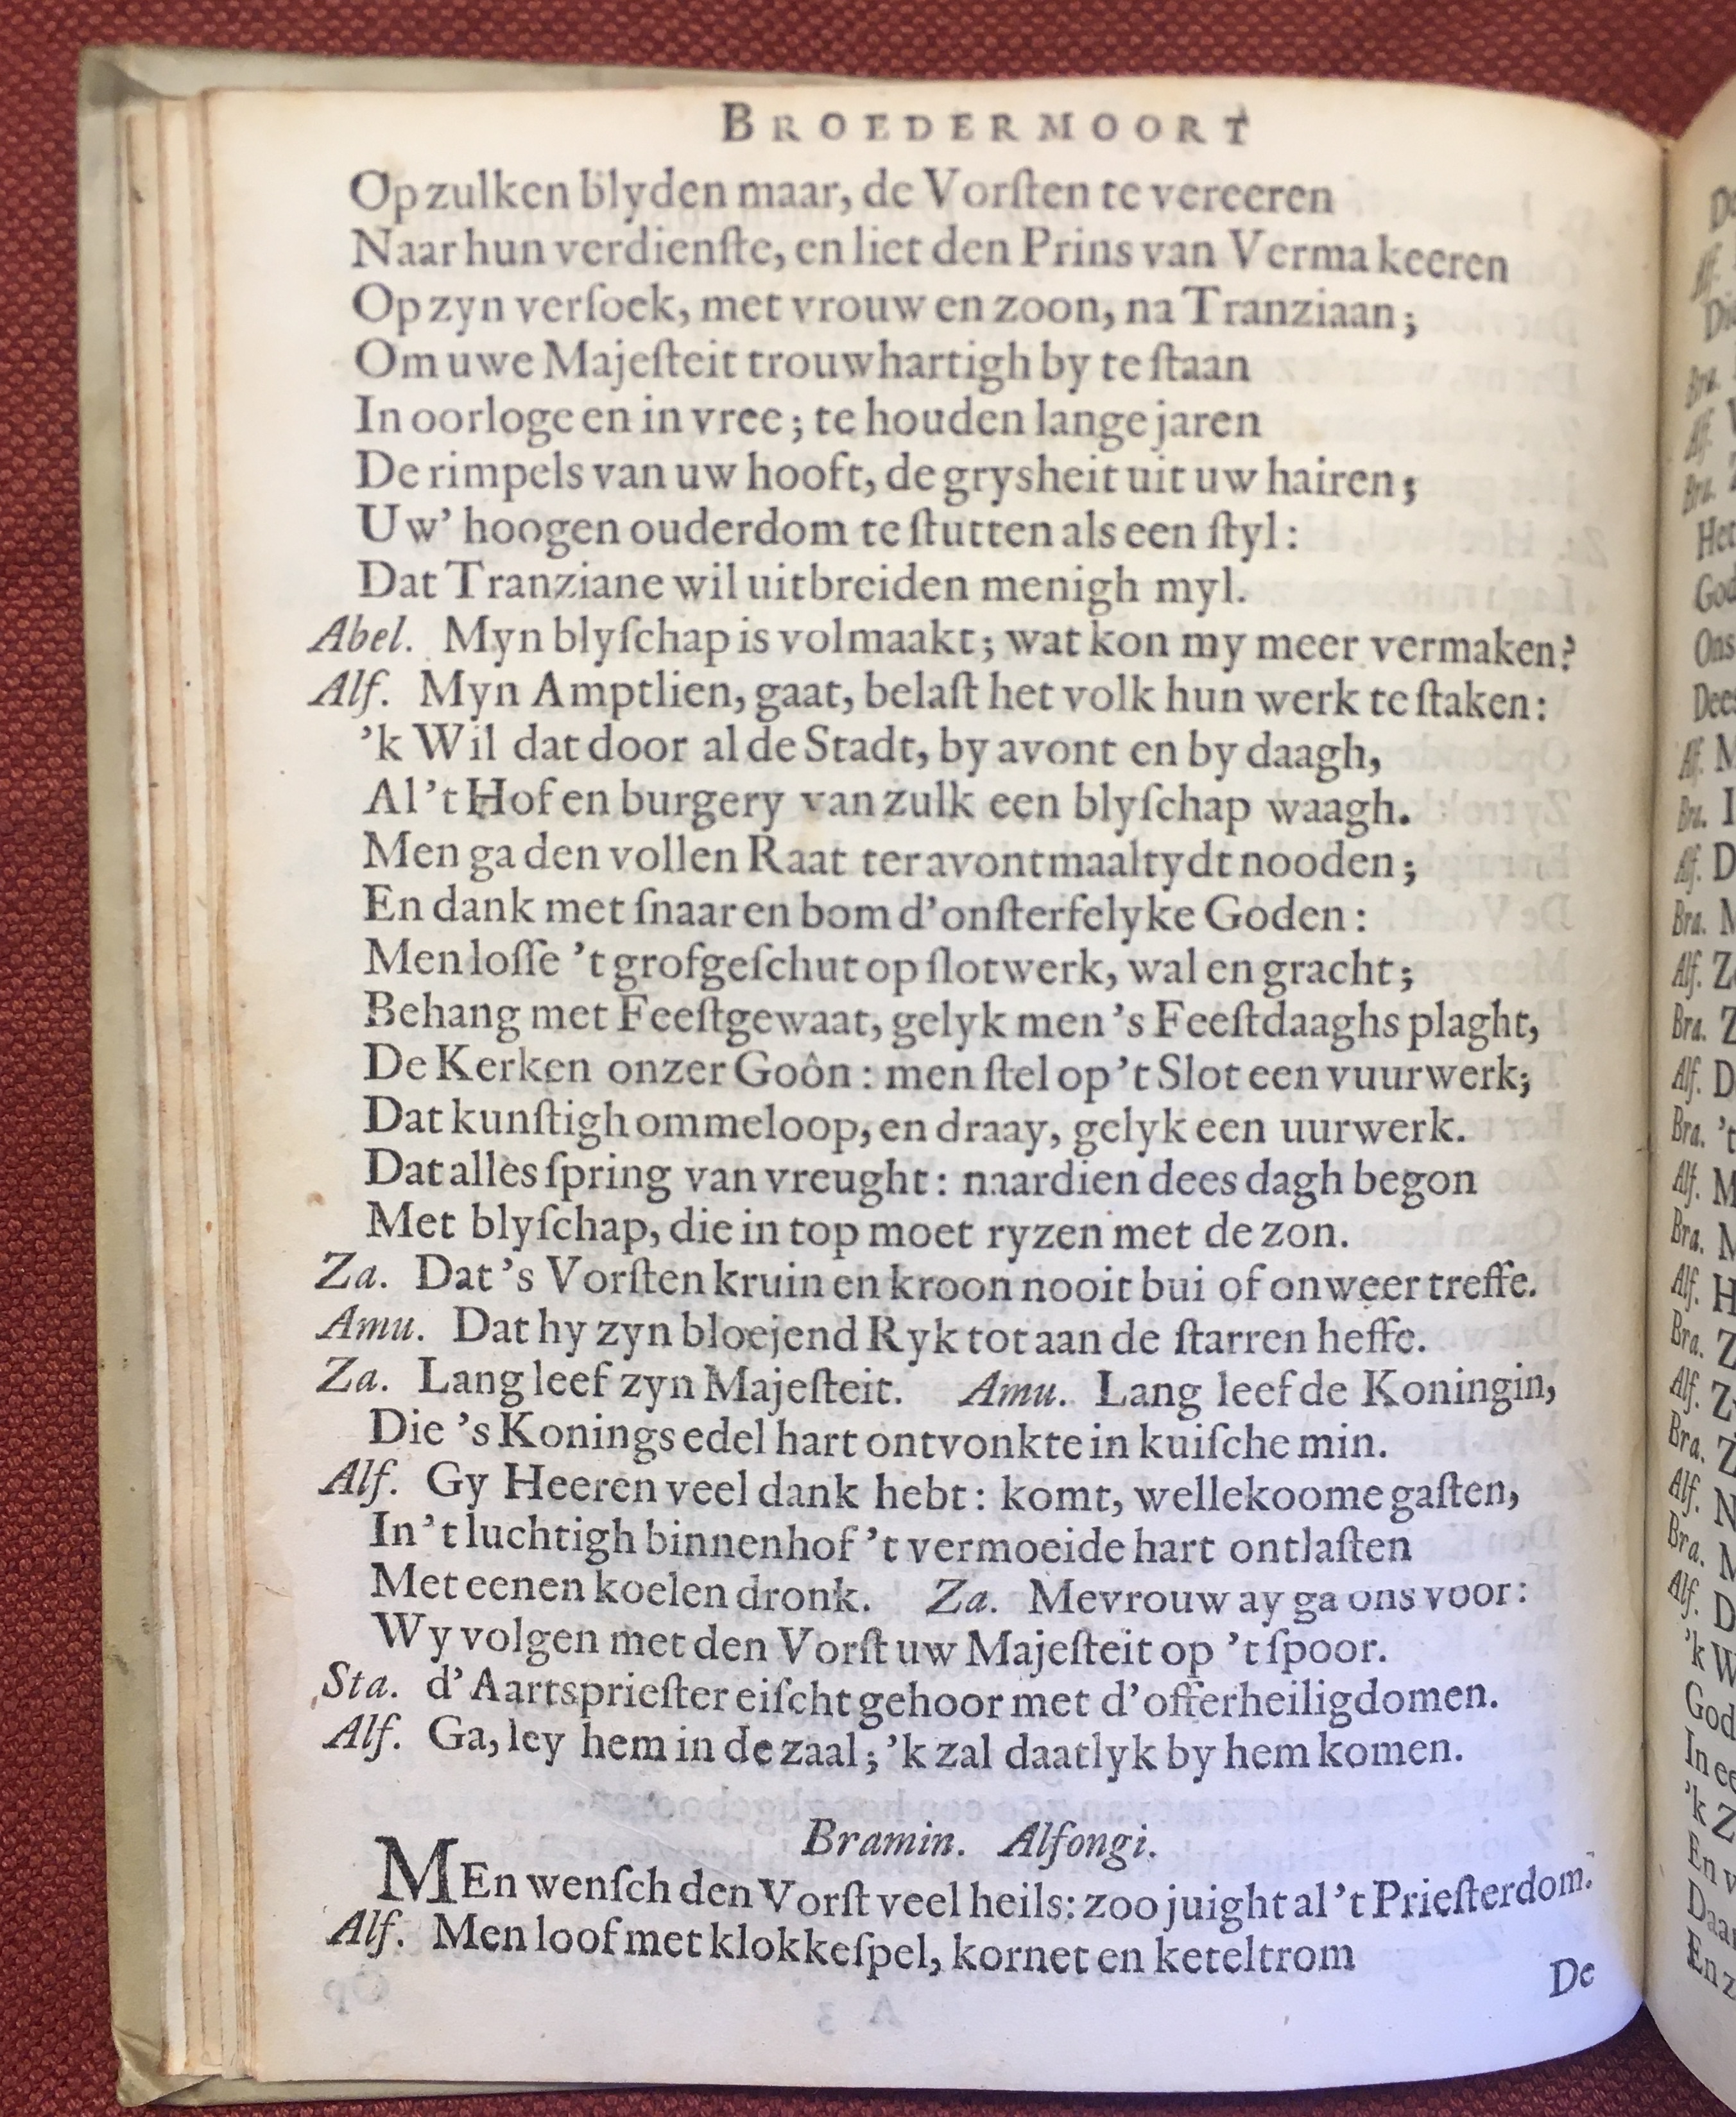 BROEDERMOORT
Op zulken blyden maar, de Vorſten te vereeren
Naar hun verdienſte, en liet den Prins van Verma keeren
Op zyn verſoek, met vrouw en zoon, na Tranziaan;
Om uwe Majeſteit trouwhartigh by te ſtaan
In oorloge en in vree; te houden lange jaren
De rimpels van uw hooft, de grysheit uit uw hairen;
Uw' hoogen ouderdom te ſtutten als een ſtyl:
Dat Tranziane wil uitbreiden menigh myl.
Abel. Myn blyſchap is volmaakt; wat kon my meer vermaken?
Alf. Myn Amptlien, gaat, belaſt het volk hun werk te ſtaken:
'k Wil dat door al de Stadt, by avont en by daagh,
Al 't Hof en burgery van zulk een blyſchap waagh.
Men ga den vollen Raat ter avontmaaltydt nooden;
En dank met ſnaar en bom d'onſterfelyke Goden:
Men loſſe 't grofgeſchut op ſlotwerk, wal en gracht;
Behang met Feeſtgewaat, gelyk men 's Feeſtdaaghs plaght,
De Kerken onzer Goôn: men ſtel op 't Slot een vuurwerk;
Dat kunſtigh ommeloop, en draay, gelyk een uurwerk.
Dat alles ſpring van vreught: naardien dees dagh begon
Met blyſchap, die in top moet ryzen met de zon.
Za. Dat 's Vorſten kruin en kroon nooit bui of onweer treffe.
Amu. Dat hy zyn bloejend Ryk tot aan de ſtarren heffe.
Za. Lang leef zyn Majeſteit. Amu. Lang leef de Koningin,
Die 's Konings edel hart ontvonkte in kuiſche min.
Alf. Gy Heeren veel dank hebt: komt, wellekoome gaſten,
In 't luchtigh binnenhof 't vermoeide hart ontlaſten
Met eenen koelen dronk. Za. Mevrouw ay ga ons voor:
Wy volgen met den Vorſt uw Majeſteit op 't ſpoor.
Sta. d'Aartsprieſter eiſcht gehoor met d'offerheiligdomen.
Alf. Ga, ley hem in de zaal; 'k zal daatlyk by hem komen.
Bramin. Alfongi.
MEn wenſch den Vorſt veel heils: zoo juight al 't Prieſterdom.
Alf. Men loof met klokkeſpel, kornet en keteltrom
De